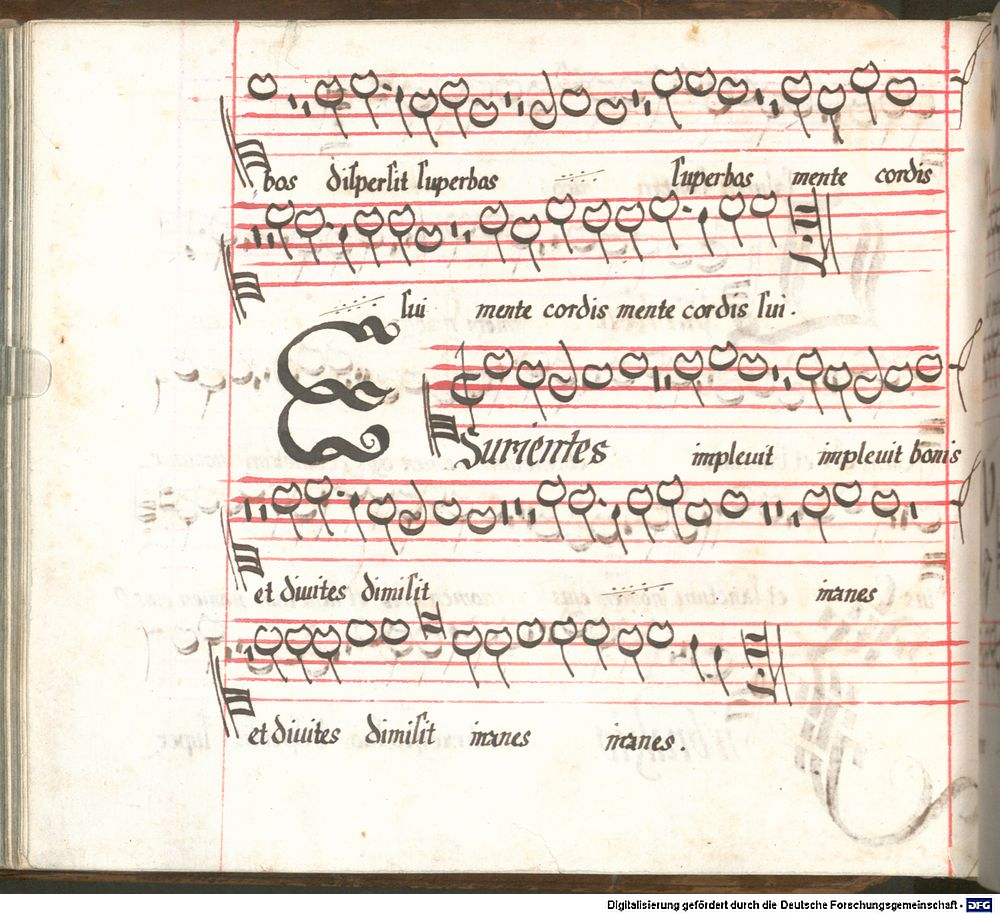 bos diſperſit ſuperbos ſuperbos mente cordis
ſui mente cordis mente cordis ſui.
ESurientes impleuit impleuit bonis
et diuites dimiſit inanes
et diuites dimiſit inanes inanes.
Digitalisierung gefördert durch die Deutsche Forschungsgemeinschaft - DFG